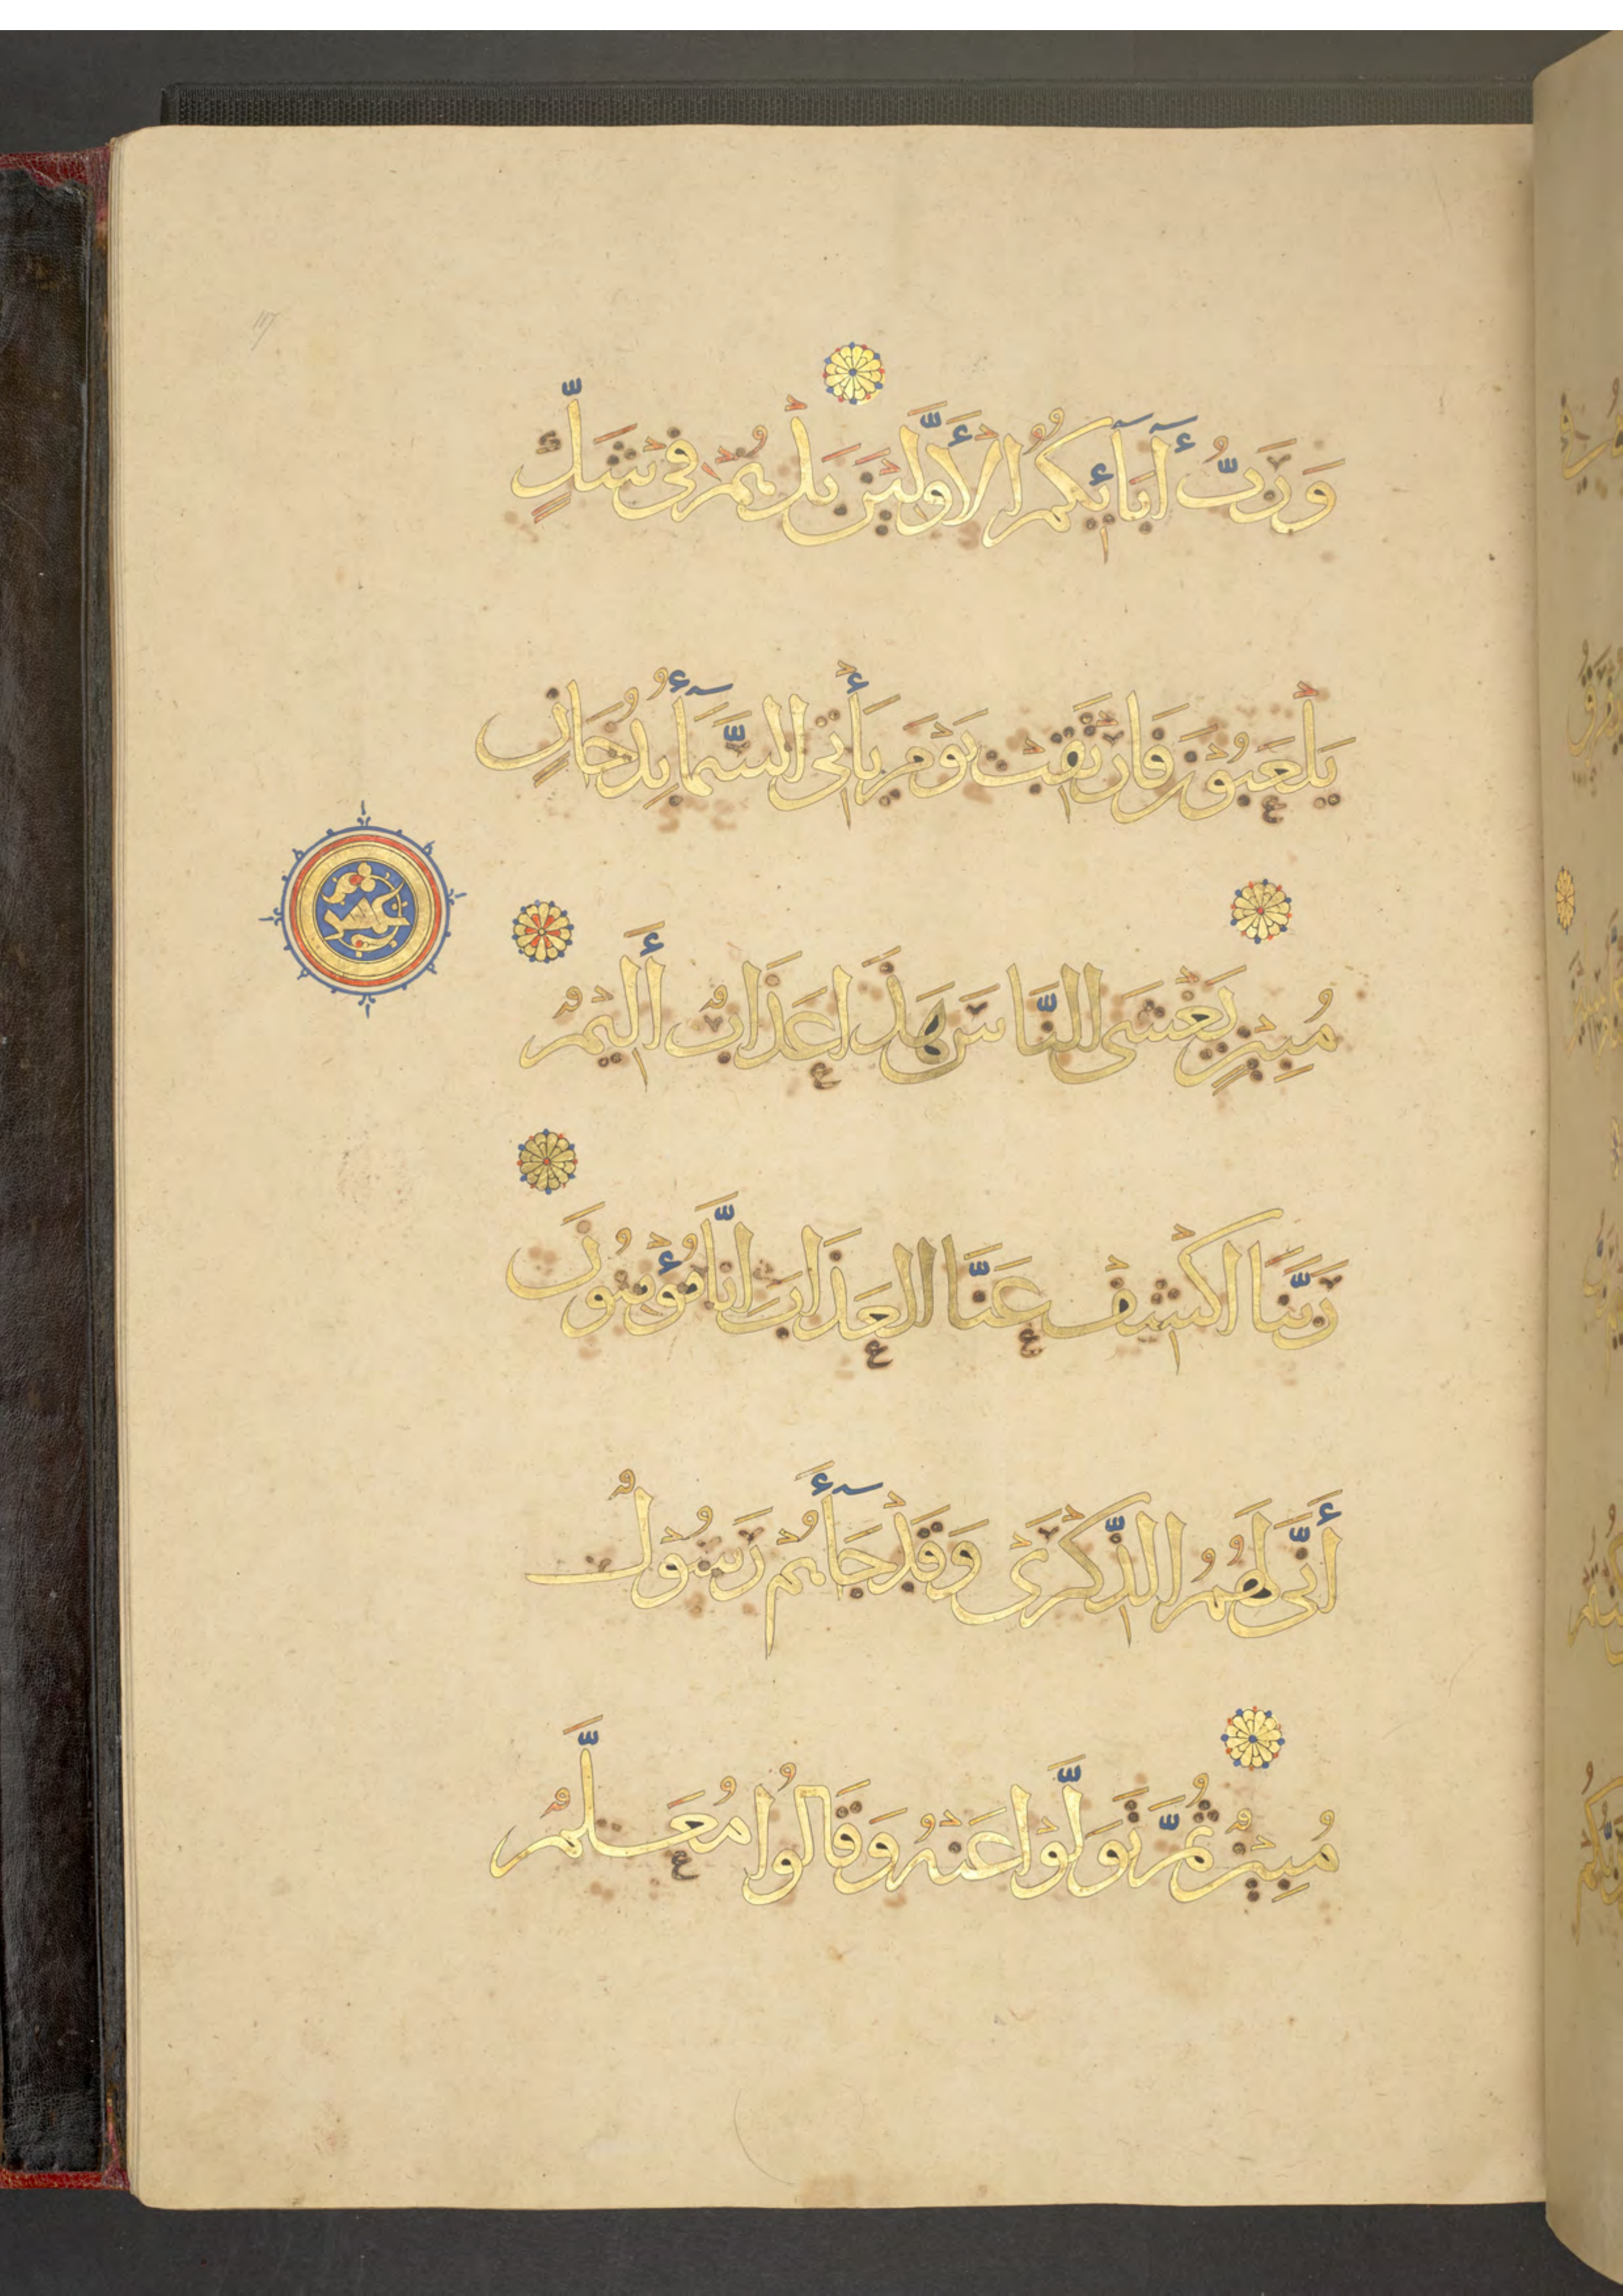 وَرَبُّ أَبَآئِكُمُ الْأَوَّلِينَ بَلْ هُمْ فِي شَكٍّ
يَلْعَبُونَ فَارْتَقِبْ يَوْمَ يَأْتِي السَّمَآءُ بِدُخَانٍ
مُبِينٍ يَغْشَى النَّاسَ هَذَا عَذَابٌ أَلِيمٌ
عشر
رَبَّنَا اكْشِفْ عَنَّا الْعَذَابَ إِنَّا مُؤْمِنُونَ
أَنَّى لَهُمُ الذِّكْرَى وَقَدْ جَآءَهُمْ رَسُولٌ
مُبِينٌ ثُمَّ تَوَلَّوْا عَنْهُ وَقَالُوا مُعَلَّمٌ